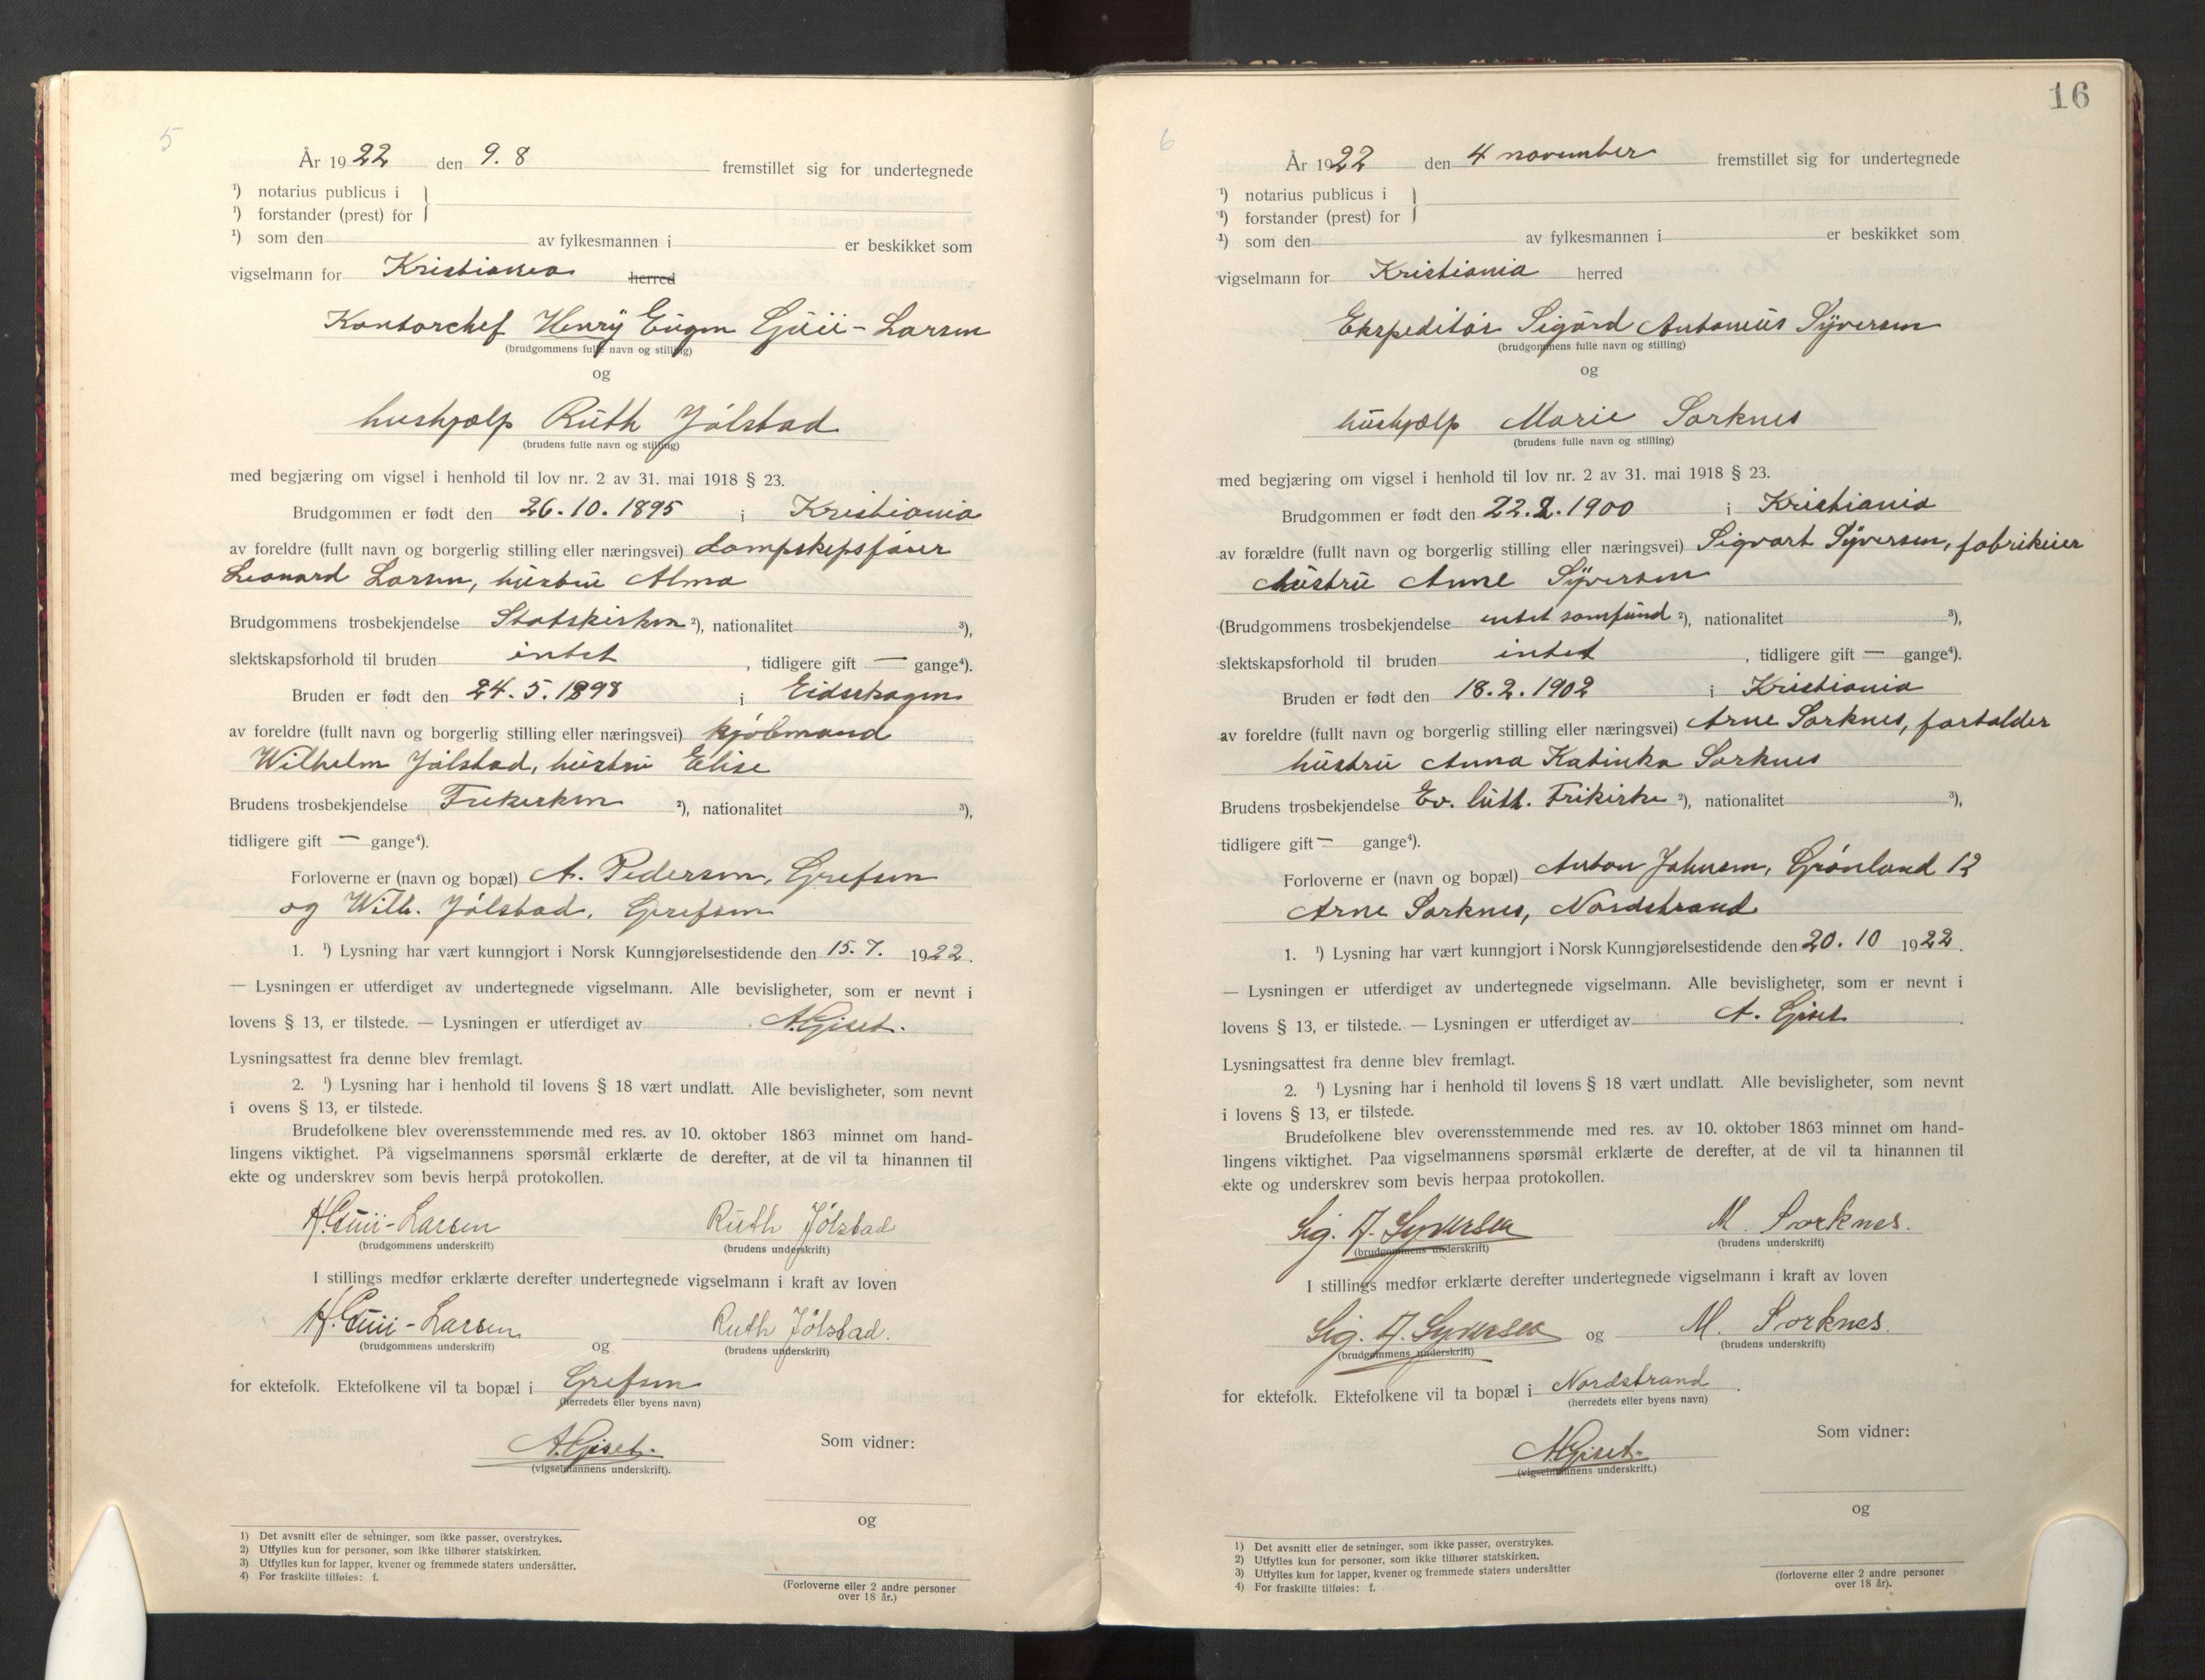 5
År 1922 den 9. 8 fremstillet sig for undertegnede
¹) notarius publicus i
¹) forstander (prest) for
¹) som den av fylkesmannen i er beskikket som
vigselmann for Kristiania herred
Kontorchef Henry Eugen Guii-Larsen
(brudgommens fulle navn og stilling)
og
hushjælp Ruth Jølstad
(brudens fulle navn og stilling)
med begjæring om vigsel i henhold til lov nr. 2 av 31. mai 1918 § 23.
Brudgommen er født den 26.10.1895 i Kristiania
av foreldre (fullt navn og borgerlig stilling eller næringsvei) dampskipsfører
Leonard Larsen, hustru Alma
Brudgommens trosbekjendelse Statskirken ²), nationalitet ³),
slektskapsforhold til bruden intet, tidligere gift — gange⁴).
Bruden er født den 24.5.1898 i Eidsskogen
av foreldre (fullt navn og borgerlig stilling eller næringsvei) kjøbmand
Wilhelm Jølstad, hustru Elise
Brudens trosbekjendelse Frikirken ²), nationalitet ³),
tidligere gift — gange⁴).
Forloverne er (navn og bopæl) A. Pedersen, Grefsen
og Wilh. Jølstad, Grefsen
1. ¹) Lysning har vært kunngjort i Norsk Kunngjørelsestidende den 15.7. 1922.
— Lysningen er utferdiget av undertegnede vigselmann. Alle bevisligheter, som er nevnt i
lovens § 13, er tilstede. — Lysningen er utferdiget av A. Giset.
Lysningsattest fra denne blev fremlagt.
2. ¹) Lysning har i henhold til lovens § 18 vært undlatt. Alle bevisligheter, som nevnt
i ovens § 13, er tilstede.
Brudefolkene blev overensstemmende med res. av 10. oktober 1863 minnet om hand-
lingens viktighet. På vigselmannens spørsmål erklærte de derefter, at de vil ta hinannen til
ekte og underskrev som bevis herpå protokollen.
H. Guii-Larsen Ruth Jølstad
(brudgommens underskrift) (brudens underskrift)
I stillings medfør erklærte derefter undertegnede vigselmann i kraft av loven
H. Guii-Larsen og Ruth Jølstad.
(brudgommens underskrift) (brudens underskrift)
for ektefolk. Ektefolkene vil ta bopæl i Grefsen
(herredets eller byens navn)
A. Giset.
(vigselmannens underskrift).
Som vidner:
og
(Forloverne eller 2 andre personer
over 18 år.)
1) Det avsnitt eller de setninger, som ikke passer, overstrykes.
2) Utfylles kun for personer, som ikke tilhører statskirken.
3) Utfylles kun for lapper, kvener og fremmede staters undersåtter.
4) For fraskilte tilføies: f.
16
6
År 1922 den 4 november fremstillet sig for undertegnede
¹) notarius publicus i
¹) forstander (prest) for
¹) som den av fylkesmannen i er beskikket som
vigselmann for Kristiania herred
Ekspeditør Sigurd Antonius Syversen
(brudgommens fulle navn og stilling)
og
hushjælp Marie Sorknes
(brudens fulle navn og stilling)
med begjæring om vigsel i henhold til lov nr. 2 av 31. mai 1918 § 23.
Brudgommen er født den 22.2.1900 i Kristiania
av forældre (fullt navn og borgerlig stilling eller næringsvei) Sigvart Syversen, fabrikeier
hustru Anne Syversen
(Brudgommens trosbekjendelse intet samfund ²), nationalitet ³),
slektskapsforhold til bruden intet, tidligere gift — gange⁴).
Bruden er født den 18.2.1902 i Kristiania
av foreldre (fullt navn og borgerlig stilling eller næringsvei) Arne Sorknes, fortolder
hustru Anna Katinka Sorknes
Brudens trosbekjendelse Ev. luth. Frikirke ²), nationalitet ³),
tidligere gift — gange⁴).
Forloverne er (navn og bopæl) Anton Johnsen, Grønland 12
Arne Sorknes, Nordstrand
1. ¹) Lysning har vært kunngjort i Norsk Kunngjørelsestidende den 20.10 1922.
— Lysningen er utferdiget av undertegnede vigselmann. Alle bevisligheter, som er nevnt i
lovens § 13, er tilstede. — Lysningen er utferdiget av A. Giset.
Lysningsattest fra denne blev fremlagt.
2. ¹) Lysning har i henhold til lovens § 18 vært undlatt. Alle bevisligheter, som nevnt
i lovens § 13, er tilstede.
Brudefolkene blev overensstemmende med res. av 10. oktober 1863 minnet om hand-
lingens viktighet. Paa vigselmannens spørsmål erklærte de derefter, at de vil ta hinannen til
ekte og underskrev som bevis herpaa protokollen.
Sig. A. Syversen M. Sorknes.
(brudgommens underskrift) (brudens underskrift)
I stillings medfør erklærte derefter undertegnede vigselmann i kraft av loven
Sig. A. Syversen og M. Sorknes.
(brudgommens underskrift) (brudens underskrift)
for ektefolk. Ektefolkene vil ta bopæl i Nordstrand.
(herredets eller byens navn)
A. Giset.
(vigselmannens underskrift.)
Som vidner:
og
(forloverne eller 2 andre personer
over 18 år).
1) Det avsnitt eller de setninger, som ikke passer, overstrykes.
2) Utfylles kun for personer, som ikke tilhører statskirken.
3) Utfylles kun for lapper, kvener og fremmede staters undersåtter
4) For fraskilte tilføies: f.